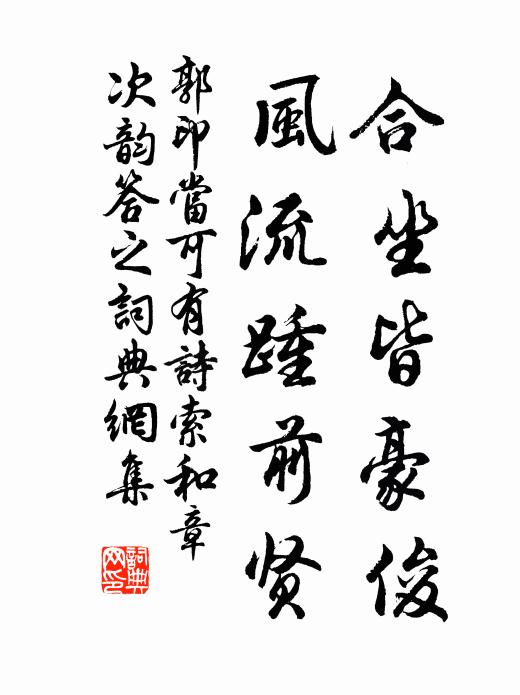 合坐皆豪俊
風流踵前贤
郭印當可有詩索和章
次韵答之詞典網集
詞典網印